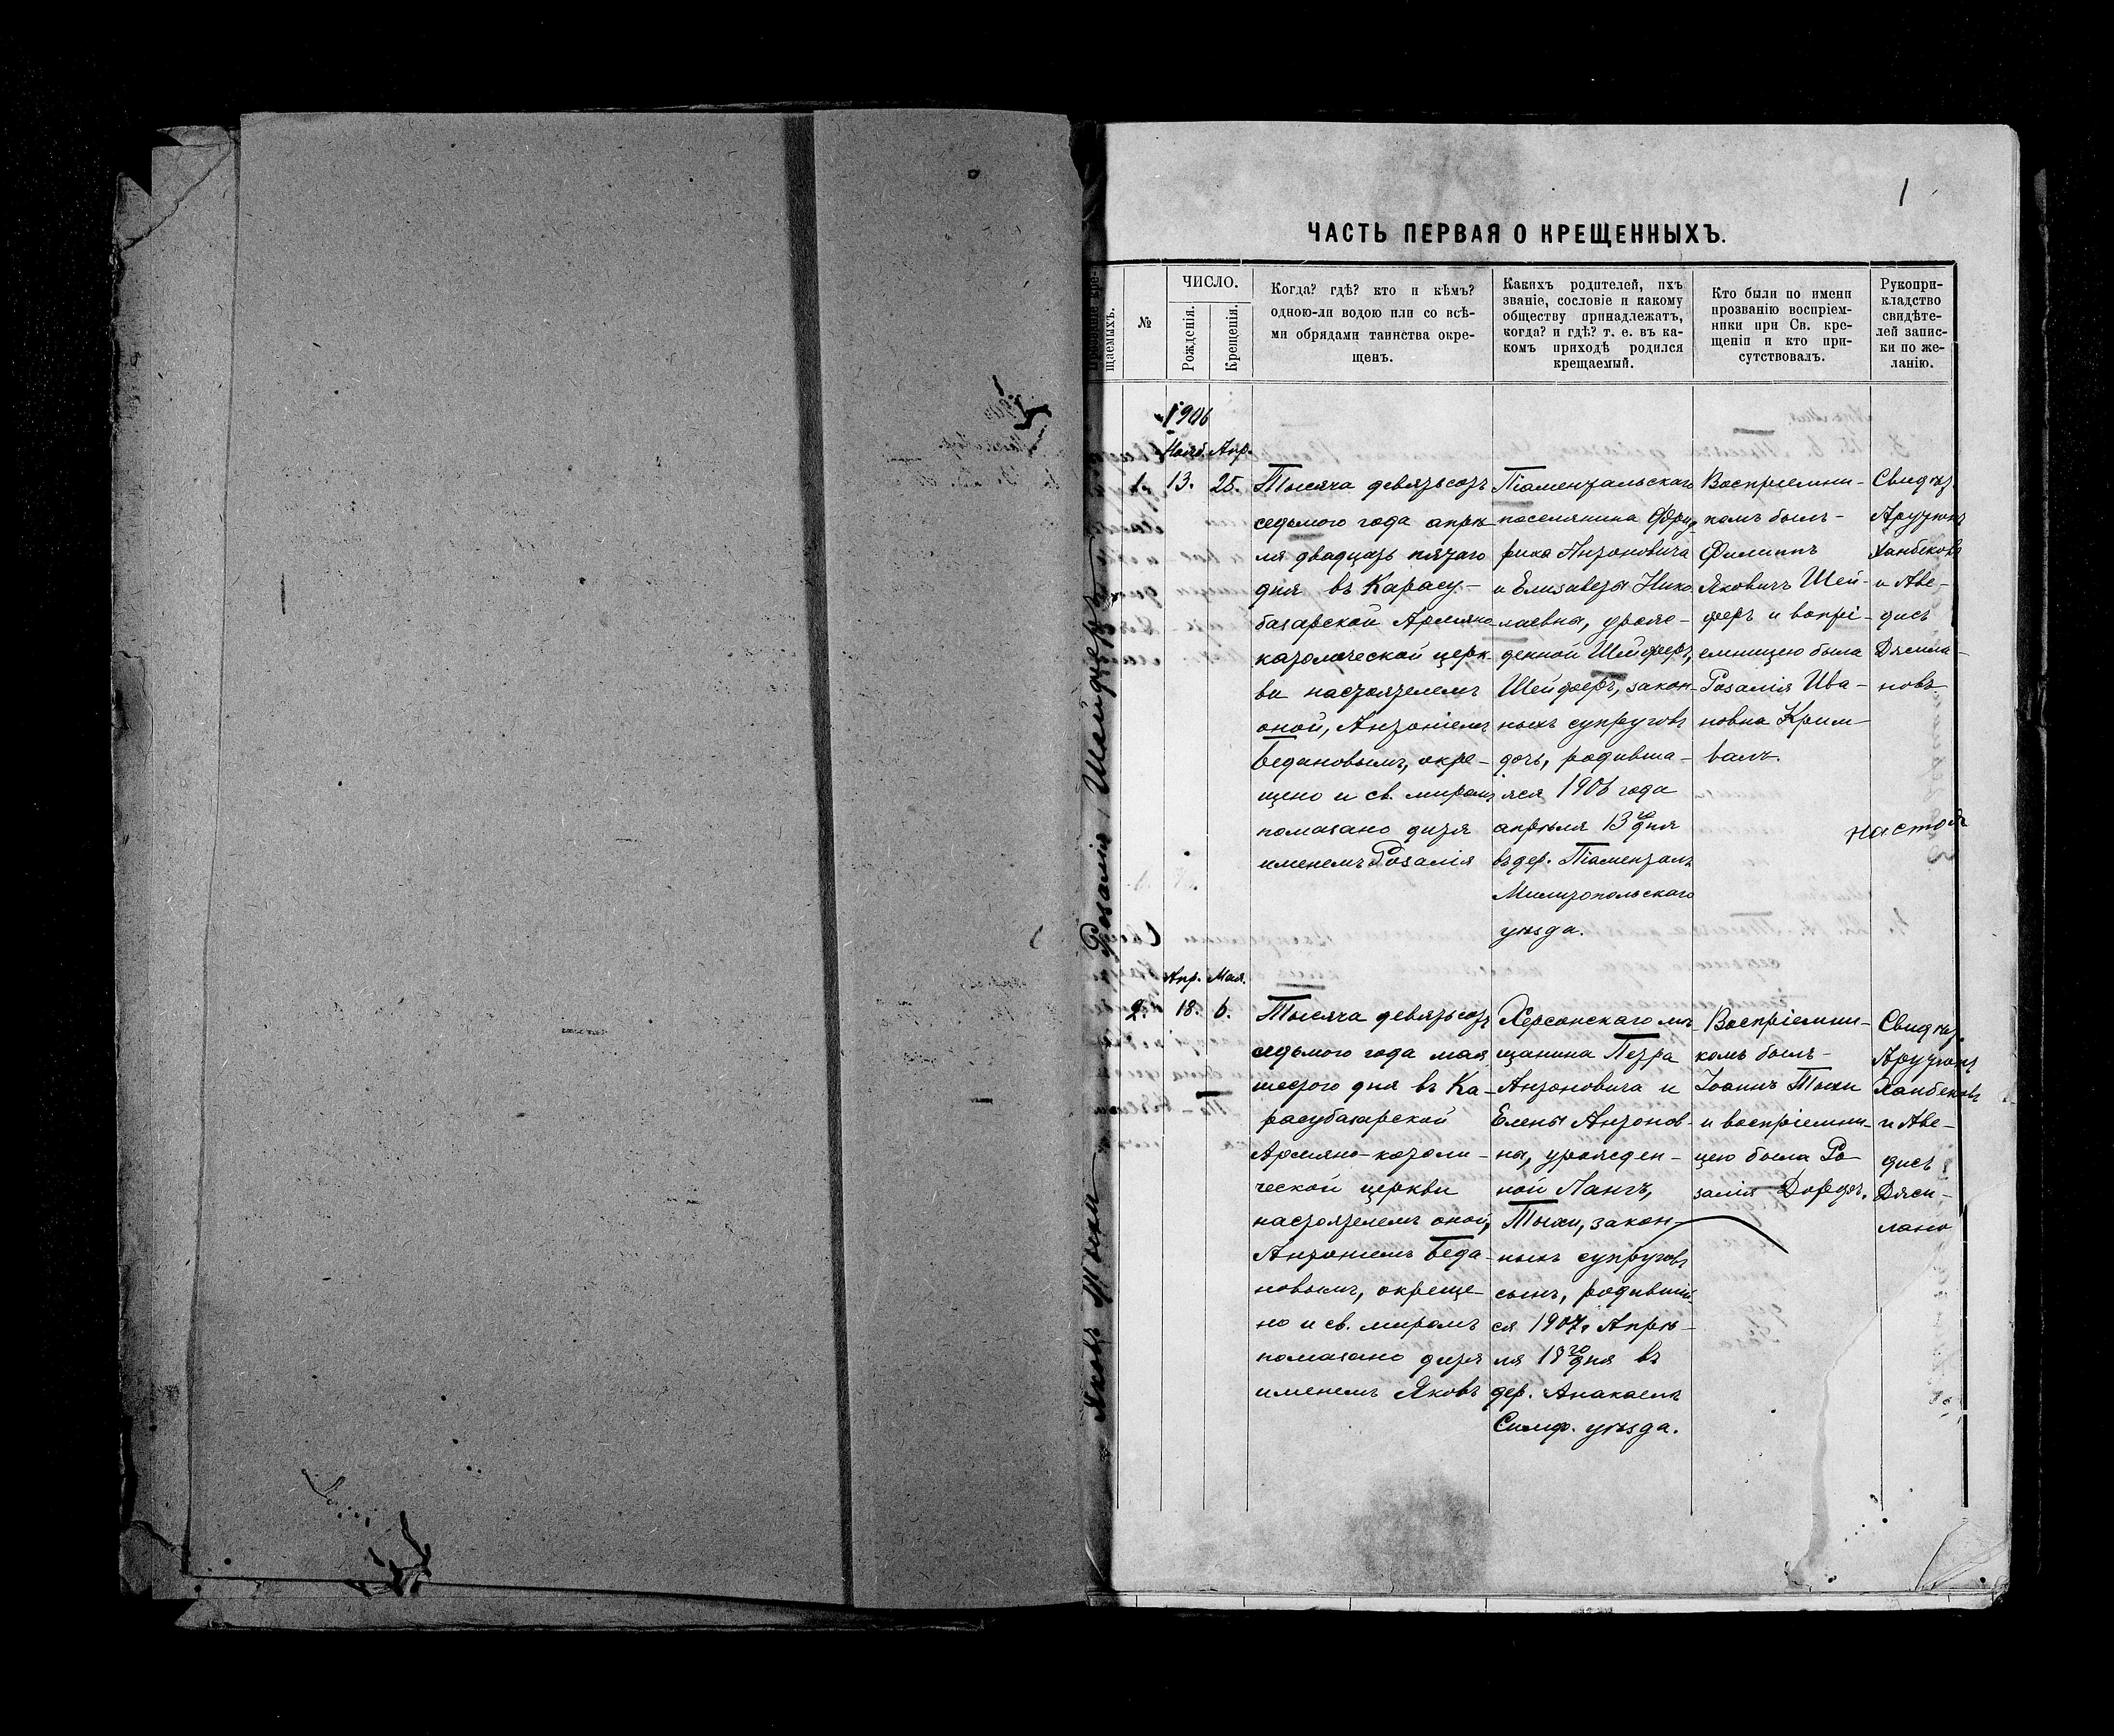 1
ЧАСТЬ ПЕРВАЯ О КРЕЩЕННЫХЪ.
щаемыхъ.
№
ЧИСЛО.
Рожденія.
Крещенія.
Когда? гдѣ? кто и кѣмъ?
одною-ли водою или со всѣ-
ми обрядами таинства окре-
щенъ.
Какихъ родителей, ихъ
званіе, сословіе и какому
обществу принадлежатъ,
когда? и гдѣ? т. е. въ ка-
комъ приходѣ родился
крещаемый.
Кто были по имени
прозванію воспріем-
ники при Св. кре-
щеніи и кто при-
сутствовалъ.
Рукопри-
кладство
свидѣте-
лей запис-
ки по же-
ланію.
Розалія Шейферъ
1906
Апр.
1. 13. 25.
Тысяча девятьсотъ
седьмого года апрѣ-
ля двадцать пятаго
дня въ Карасу-
базарской Армяно
католической церк
ви настоятелемъ
оной, Антоніемъ
Бедановымъ, окре-
щено и св. миромъ
помазано дитя
именемъ Розалія
Тіаментальскаго
поселянина Фри
риха Антоновича
и Елизаветы Нико
лаевны, урож-
денной Шейферъ,
Шейферъ, закон-
ныхъ супруговъ
дочь, родивша-
яся 1906 года
апрѣля 13го дня
въ дер. Тіаменталъ
Милитопольскаго
уѣзда.
Воспріемни-
комъ былъ-
Филиппъ
Яковичъ Шей-
феръ и вопрі-
емницею была
Розалія Ива-
новна Крим-
валъ.
Арутюнъ
Ханбековъ
и Аве-
дисъ
настоя
Яковъ Тыхи
Апр. Мая.
2. 18. 6.
Тысяча девятьсотъ
седьмого года мая
шестого дня въ Ка-
расубазарской
Армяно-католи-
ческой церкви
настоятелемъ оной,
Антоніемъ Беда-
новымъ, окреще-
но и св. миромъ
помазано дитя
именемъ Яковъ
Херсонскаго мѣ-
щанина Петра
Антоновича и
Елены Антонов-
ны, урожден-
ной Лангъ,
Тыхи, закон-
ныхъ супруговъ
сынъ, родившій-
ся 1907г. Апрѣ-
ля 18го дня въ
дер.
Симф. уѣзда.
Воспріемни-
комъ былъ-
Іоаннъ Тыхи
и воспріемни-
цею была Ро-
залія
Арутюнъ
Ханбековъ
и Аве-
дисъ